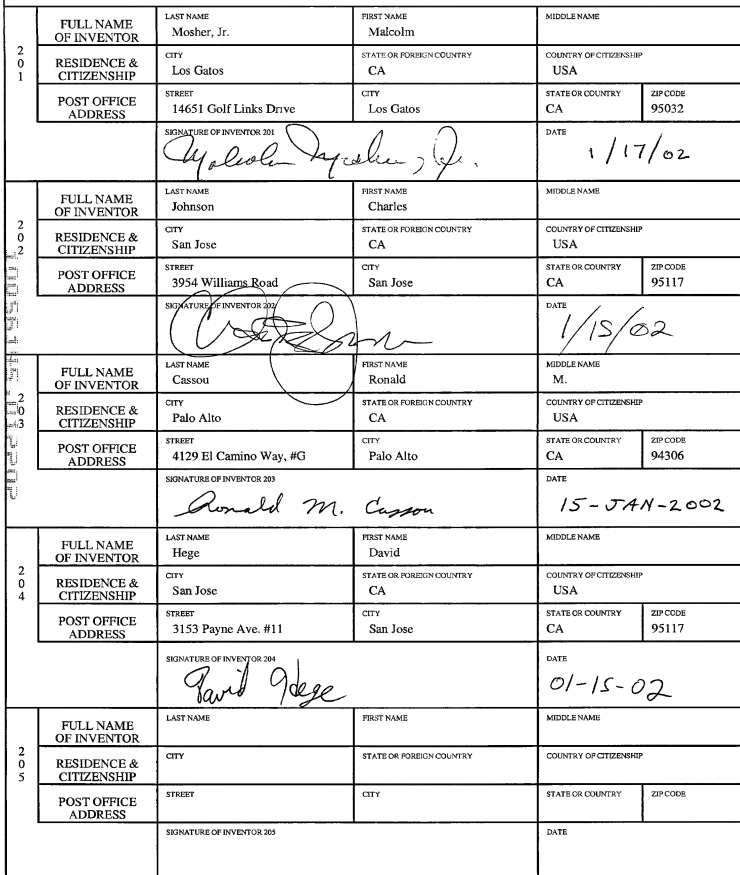 201
FULL NAME OF INVENTOR
LAST NAME Mosher, Jr.
FIRST NAME Malcolm
MIDDLE NAME
RESIDENCE & CITIZENSHIP
CITY Los Gatos
STATE OR FOREIGN COUNTRY CA
COUNTRY OF CITIZENSHIP USA
POST OFFICE ADDRESS
STREET 14651 Golf Links Drive
CITY Los Gatos
STATE OR COUNTRY CA
ZIP CODE 95032
SIGNATURE OF INVENTOR 201
Malcolm Mosher, Jr.
DATE 1/17/02
202
FULL NAME OF INVENTOR
LAST NAME Johnson
FIRST NAME Charles
MIDDLE NAME
RESIDENCE & CITIZENSHIP
CITY San Jose
STATE OR FOREIGN COUNTRY CA
COUNTRY OF CITIZENSHIP USA
POST OFFICE ADDRESS
STREET 3954 Williams Road
CITY San Jose
STATE OR COUNTRY CA
ZIP CODE 95117
SIGNATURE OF INVENTOR 202
DATE 1/15/02
203
FULL NAME OF INVENTOR
LAST NAME Cassou
FIRST NAME Ronald
MIDDLE NAME M.
RESIDENCE & CITIZENSHIP
CITY Palo Alto
STATE OR FOREIGN COUNTRY CA
COUNTRY OF CITIZENSHIP USA
POST OFFICE ADDRESS
STREET 4129 El Camino Way, #G
CITY Palo Alto
STATE OR COUNTRY CA
ZIP CODE 94306
SIGNATURE OF INVENTOR 203
Ronald M. Cassou
DATE 15-JAN-2002
204
FULL NAME OF INVENTOR
LAST NAME Hege
FIRST NAME David
MIDDLE NAME
RESIDENCE & CITIZENSHIP
CITY San Jose
STATE OR FOREIGN COUNTRY CA
COUNTRY OF CITIZENSHIP USA
POST OFFICE ADDRESS
STREET 3153 Payne Ave. #11
CITY San Jose
STATE OR COUNTRY CA
ZIP CODE 95117
SIGNATURE OF INVENTOR 204
David Hege
DATE 01-15-02
205
FULL NAME OF INVENTOR
LAST NAME
FIRST NAME
MIDDLE NAME
RESIDENCE & CITIZENSHIP
CITY
STATE OR FOREIGN COUNTRY
COUNTRY OF CITIZENSHIP
POST OFFICE ADDRESS
STREET
CITY
STATE OR COUNTRY
ZIP CODE
SIGNATURE OF INVENTOR 205
DATE